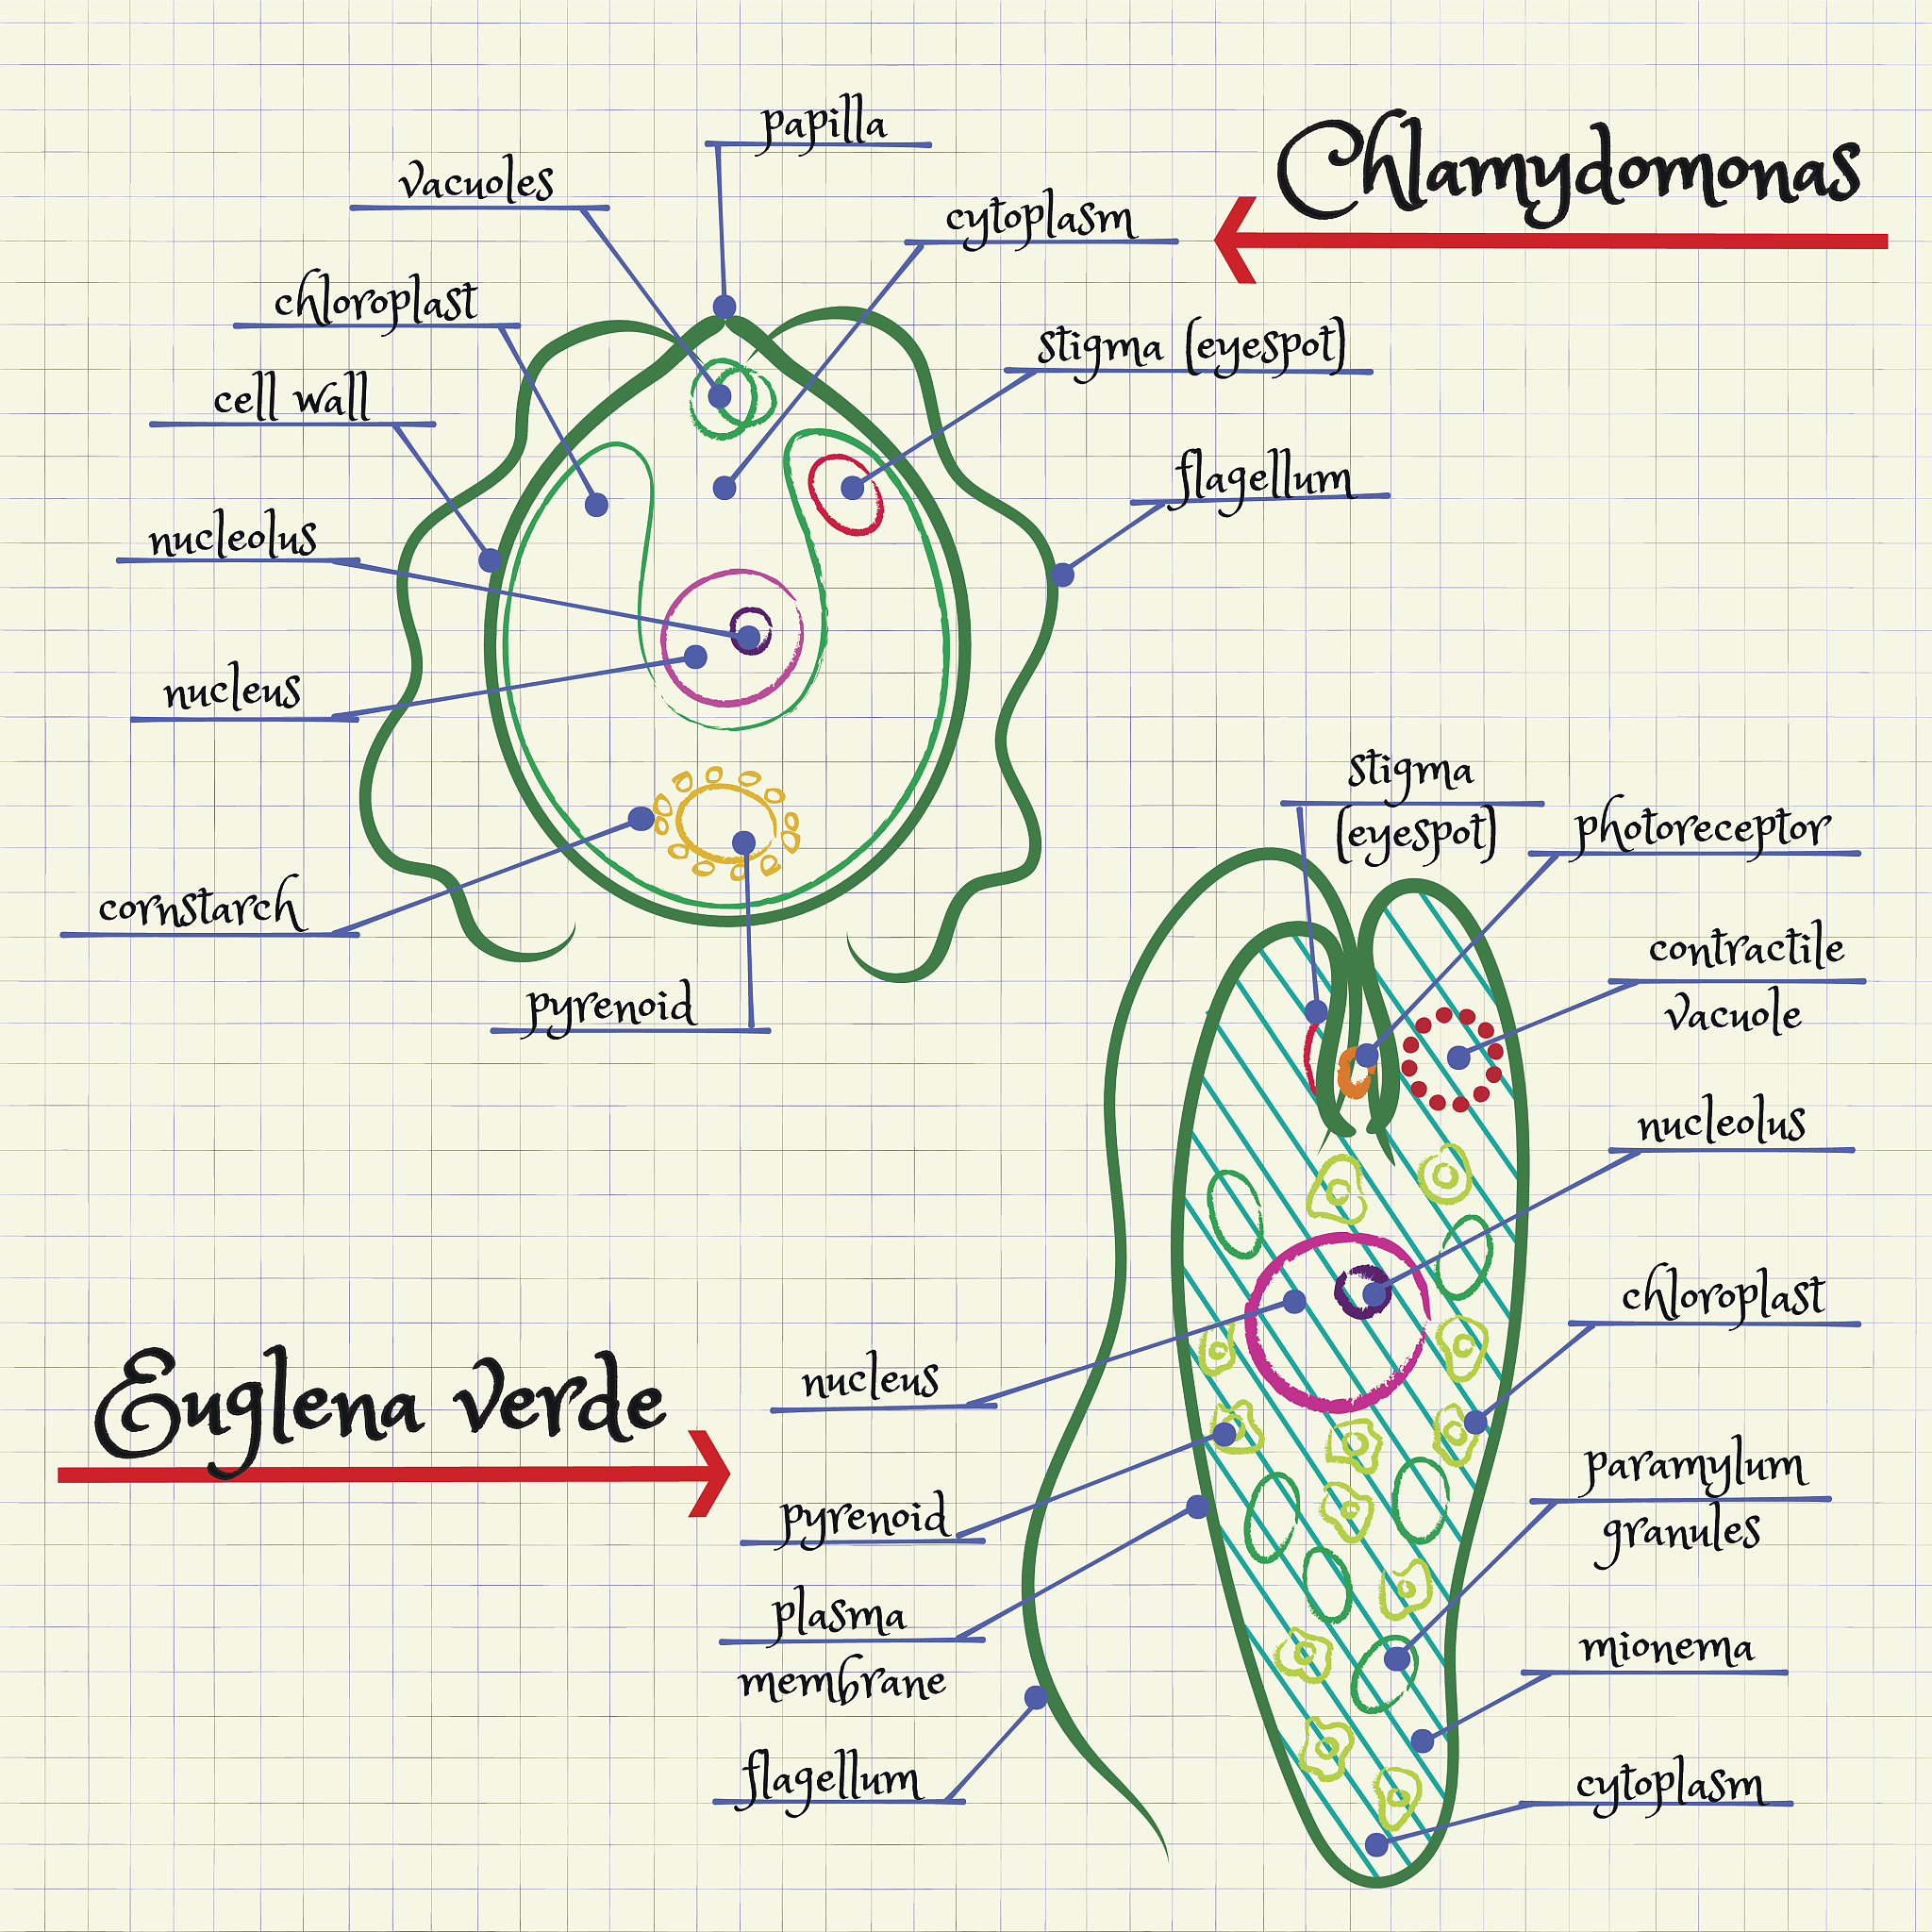 Chlamydomonas
papilla
vacuoles
cytoplasm
chloroplast
stigma (eyespot)
cell wall
flagellum
nucleolus
nucleus
cornstarch
pyrenoid
Euglena verde
stigma
(eyespot)
photoreceptor
contractile
vacuole
nucleolus
chloroplast
nucleus
paramylum
granules
pyrenoid
plasma
membrane
mionema
flagellum
cytoplasm